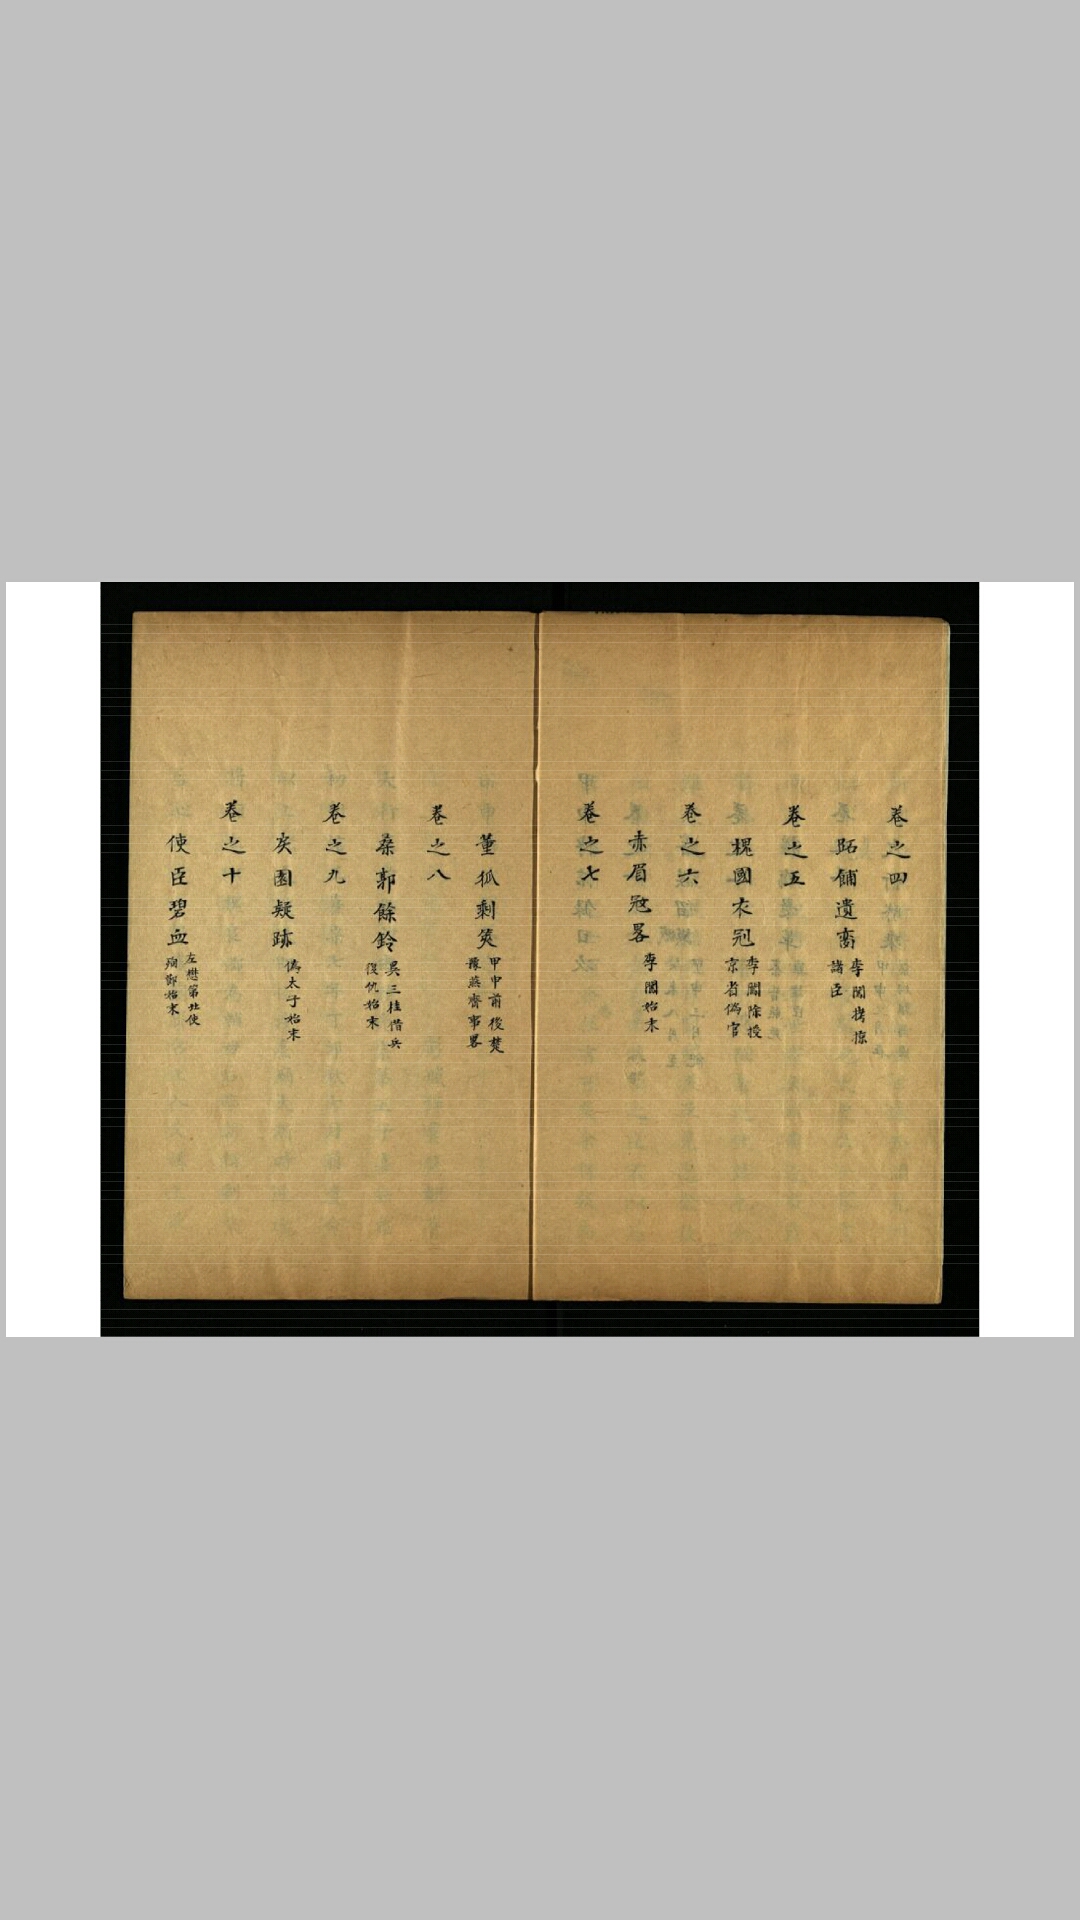 卷之四
跖餔遺臠 李闖拷掠
諸臣
卷之五
槐國衣冠 李闖除授
京者偽官
卷之六
赤眉寇畧 李闖始末
卷之七
董狐剩筴 甲申前後楚
豫燕齊事畧
卷之八
桑郭餘鈴 吳三桂借兵
復仇始末
卷之九
戾園疑跡 偽太子始末
卷之十
使臣碧血 左懋第北使
殉節始末